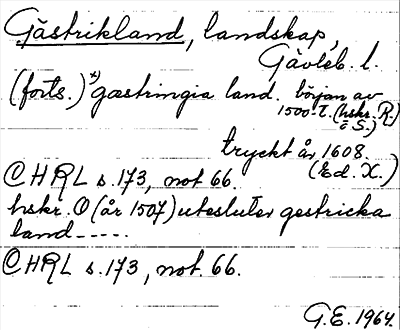 Gästrikland, landskap,
Gävleb. l.
(forts.) *) gæstringia land. början av
1500-t. (hskr. R.)
o S.)
tryckt år 1608.
(Ed. X.)
CHRL s. 173, not 66.
hskr. O (år 1507) utesluter gestricka
land-----
CHRL s. 173, not. 66.
G.E. 1964.